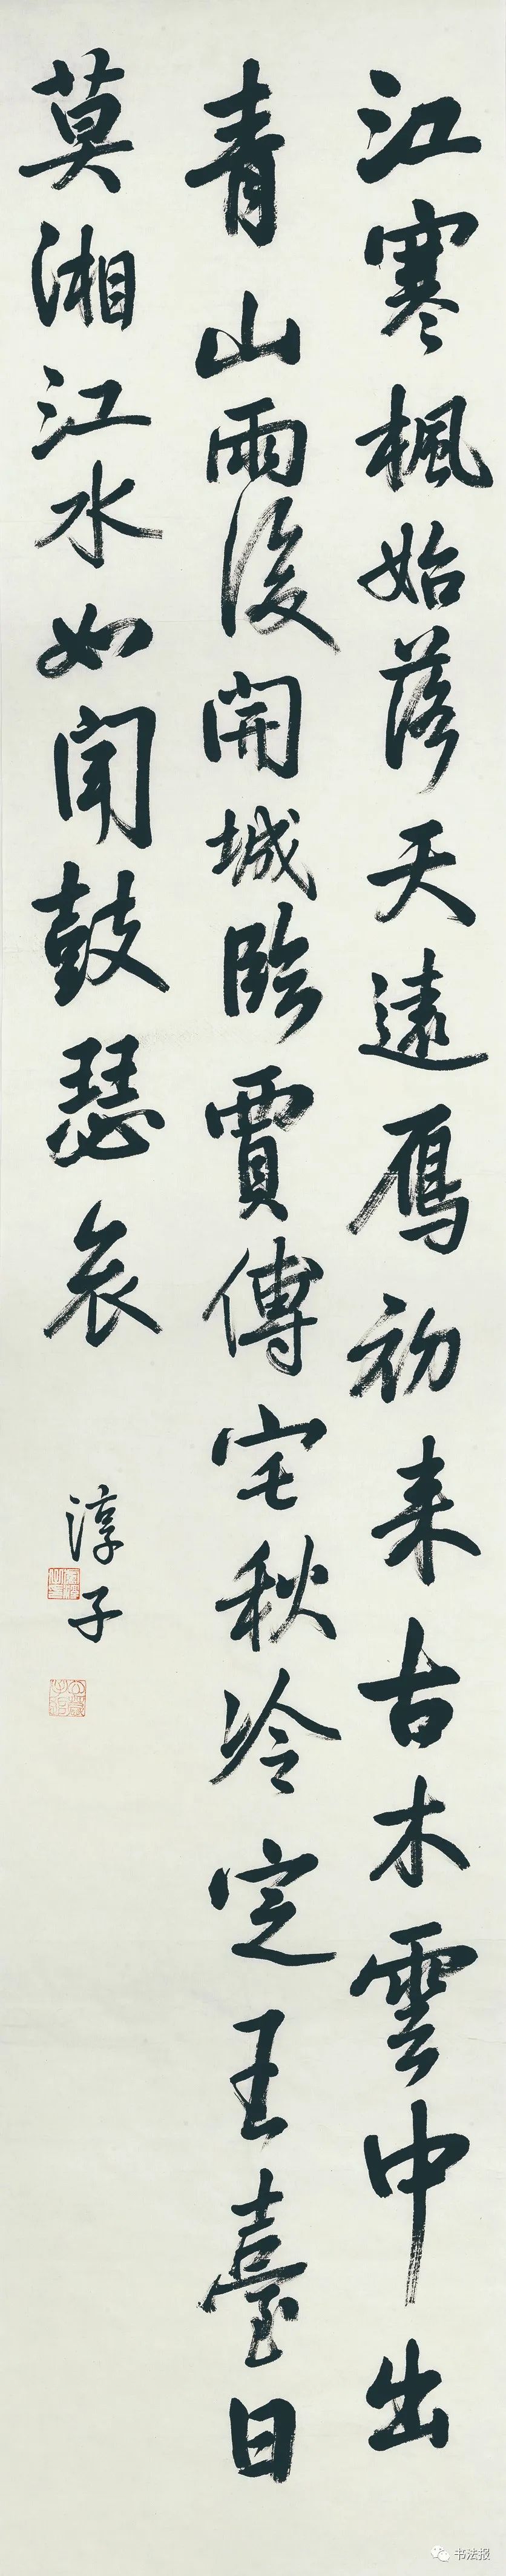 江寒楓始落天遠雁初来古木雲中出
青山雨後開城臨賈傅宅秋冷定王臺日
莫湘江水如聞鼓瑟哀
淳子
书法报